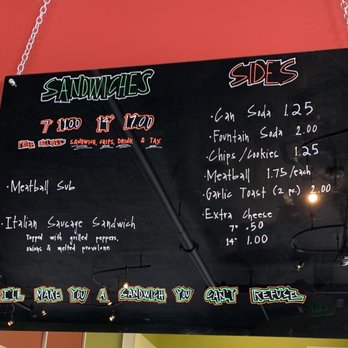 SANDWICHES
7" 11.00 14" 17.00
SANDWICH, CHIPS, DRINK & TAX
· Meatball Sub
· Italian Sausage Sandwich
Topped with grilled peppers,
onions & melted provolone
SIDES
· Can Soda 1.25
· Fountain Soda 2.00
· Chips/Cookies 1.25
· Meatball 1.75/each
· Garlic Toast (2 pc.) 2.00
· Extra Cheese
7" .50
14" 1.00
I'LL MAKE YOU A SANDWICH YOU CAN'T REFUSE